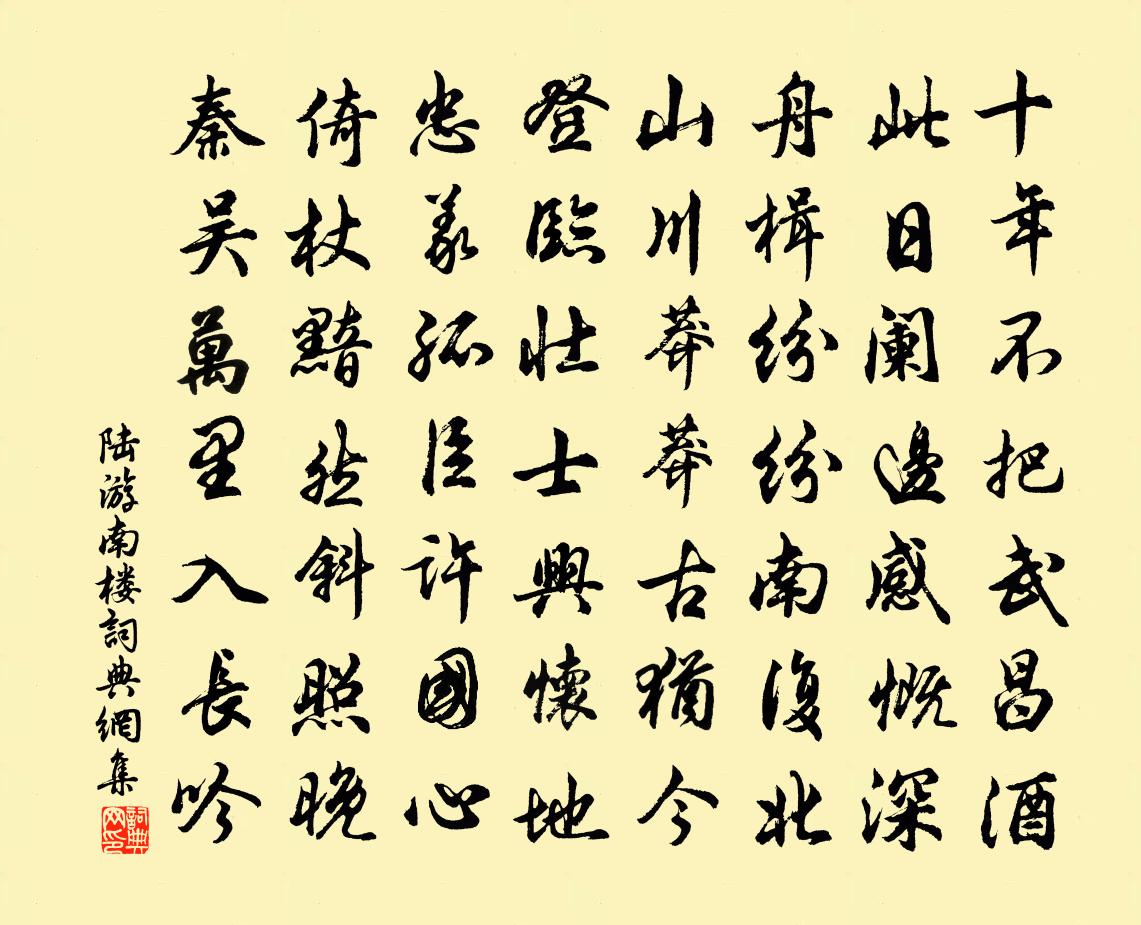 十年不把武昌酒
此日阑邊感慨深
舟楫紛紛南復北
山川莽莽古猶今
登臨壮士興懷地
忠義孤臣許國心
倚杖黯然斜照晚
秦吴萬里入長吟
陆游南楼詞典網集
詞典网印